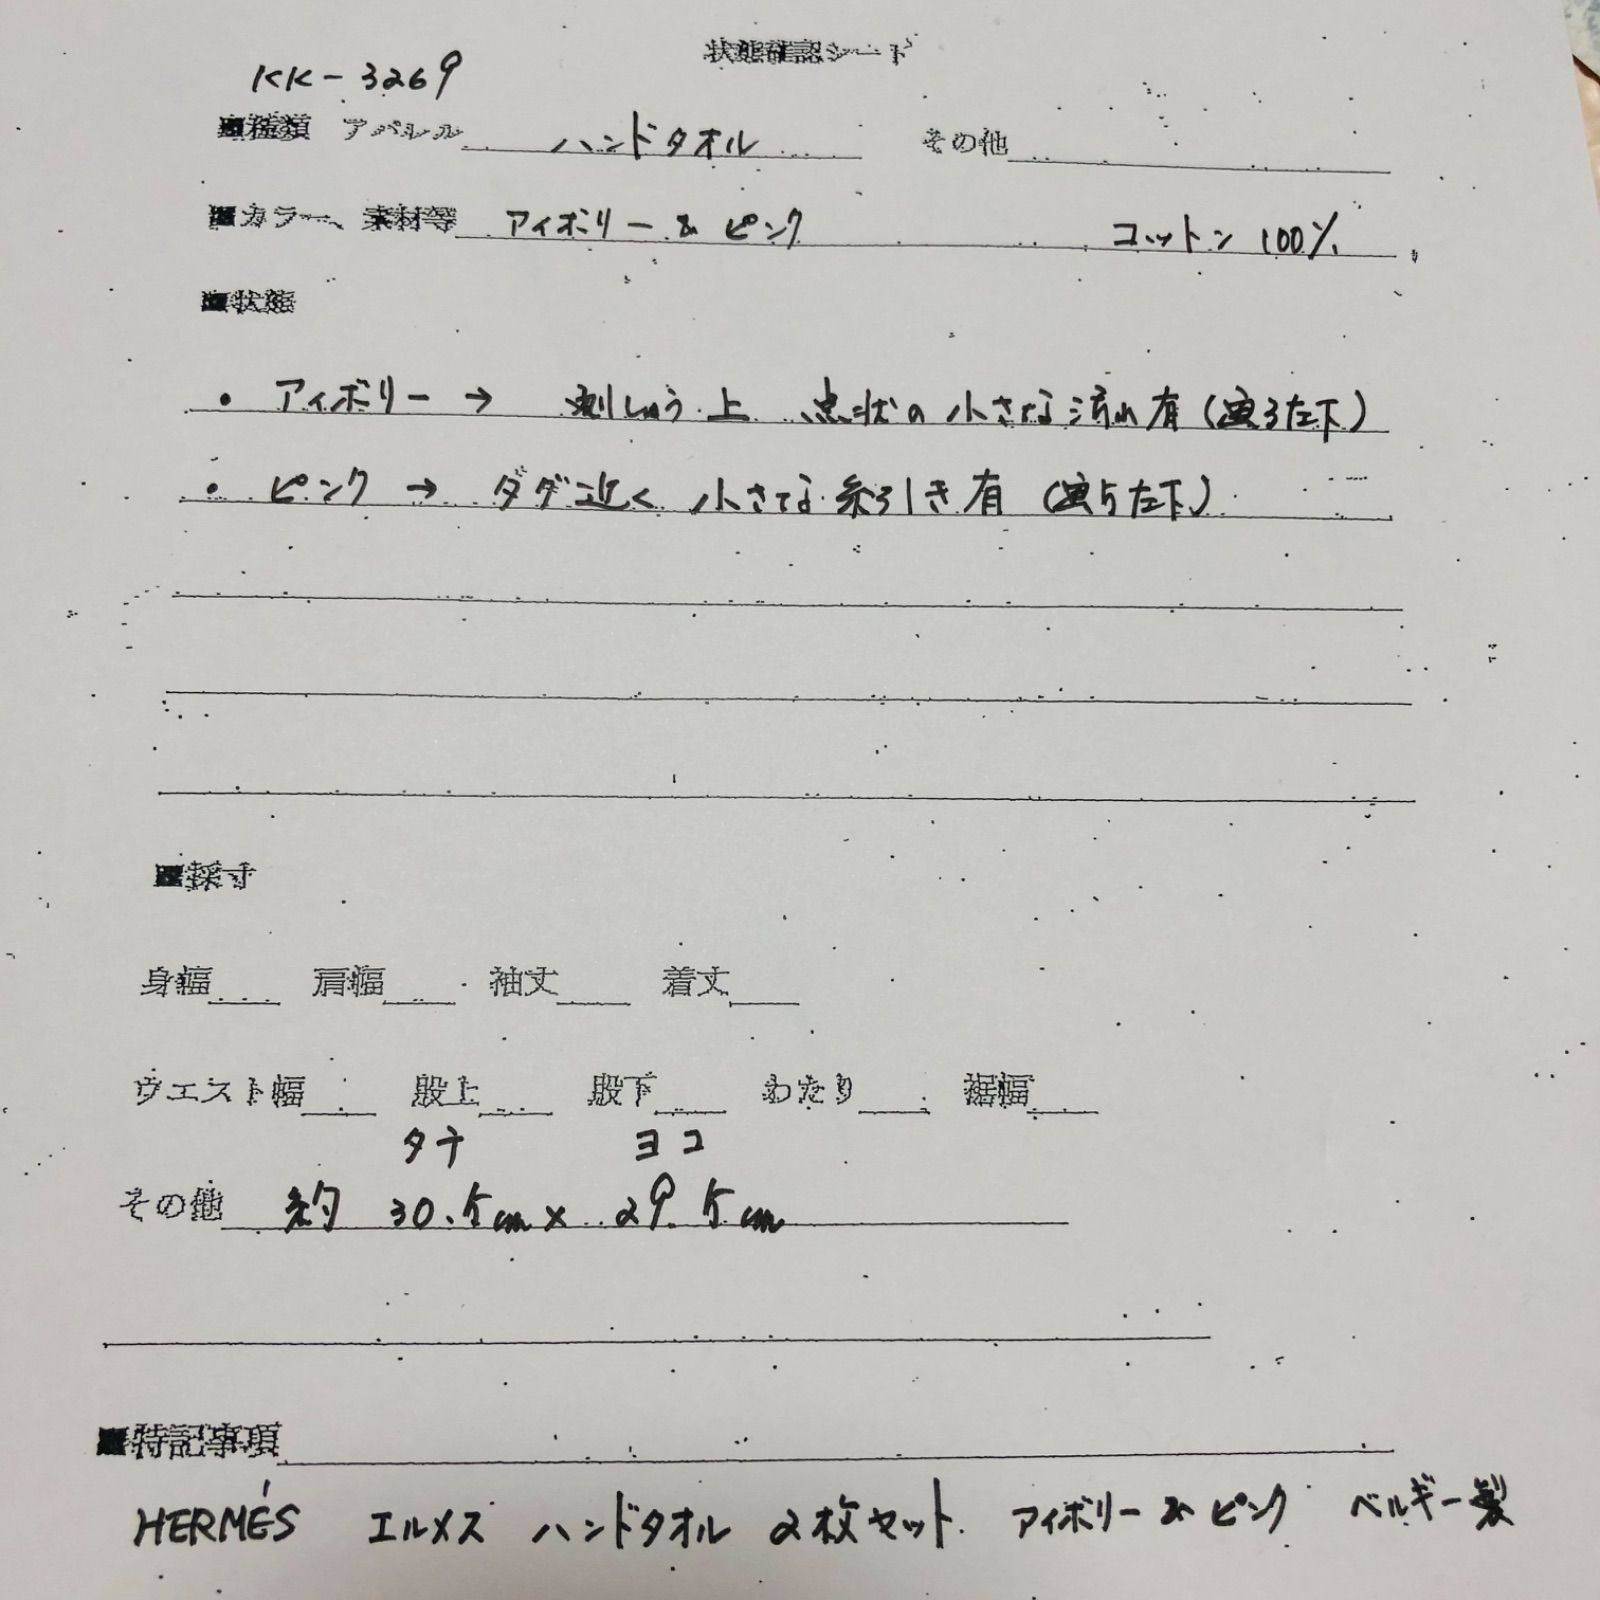 状態確認シート
KK-3269
■種類 アパレル ハンドタオル その他
■カラー、素材等 アイボリー & ピンク コットン 100%
■状態
・アイボリー → 刺しゅう上 点状の小さな汚れ有 (写3左下)
・ピンク → タグ近く 小さな糸引き有 (写5左下)
■採寸
身幅 肩幅 袖丈 着丈
ウエスト幅 股上 股下 わたり 裾幅
タテ ヨコ
その他 約 30.5cm × 29.5cm
■特記事項
HERMÉS エルメス ハンドタオル 2枚セット アイボリー & ピンク ベルギー製